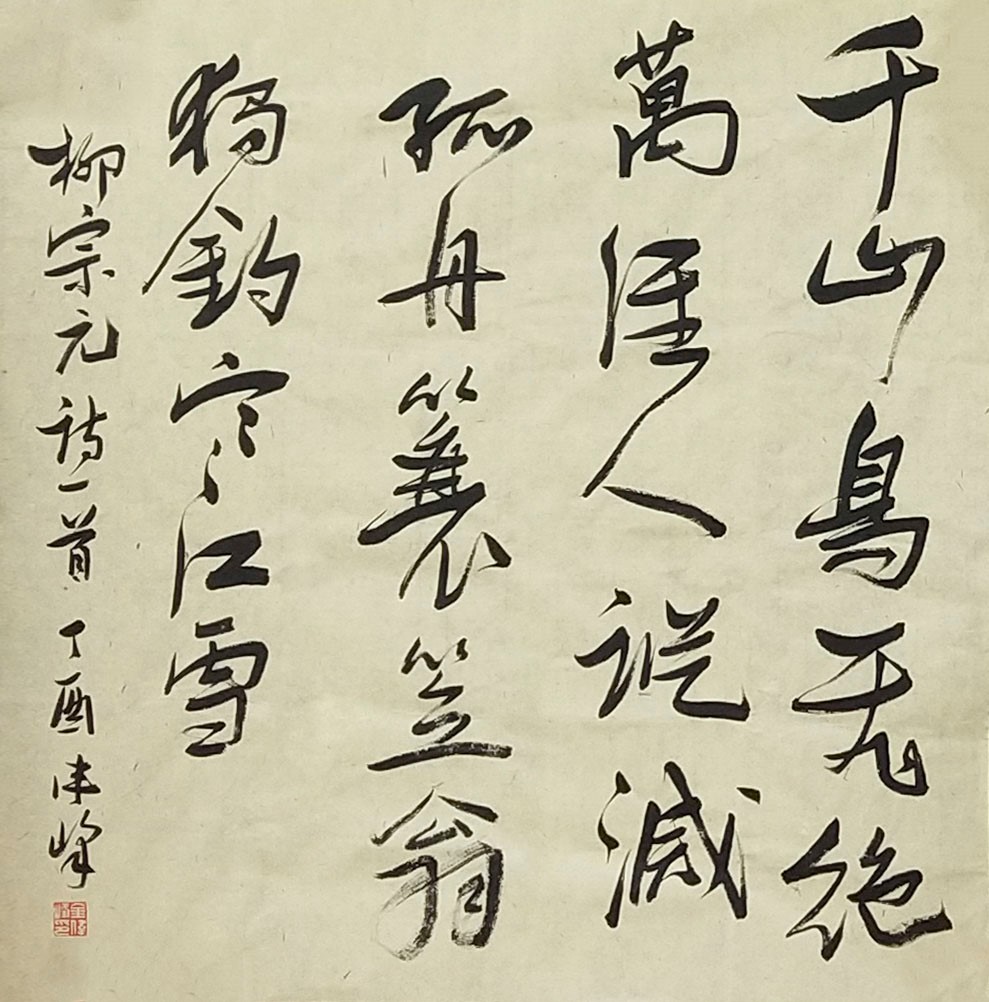 千山鳥无絶
萬徑人蹤滅
孤舟簑笠翁
獨釣寒江雪
柳宗元詩一首 丁酉 峰